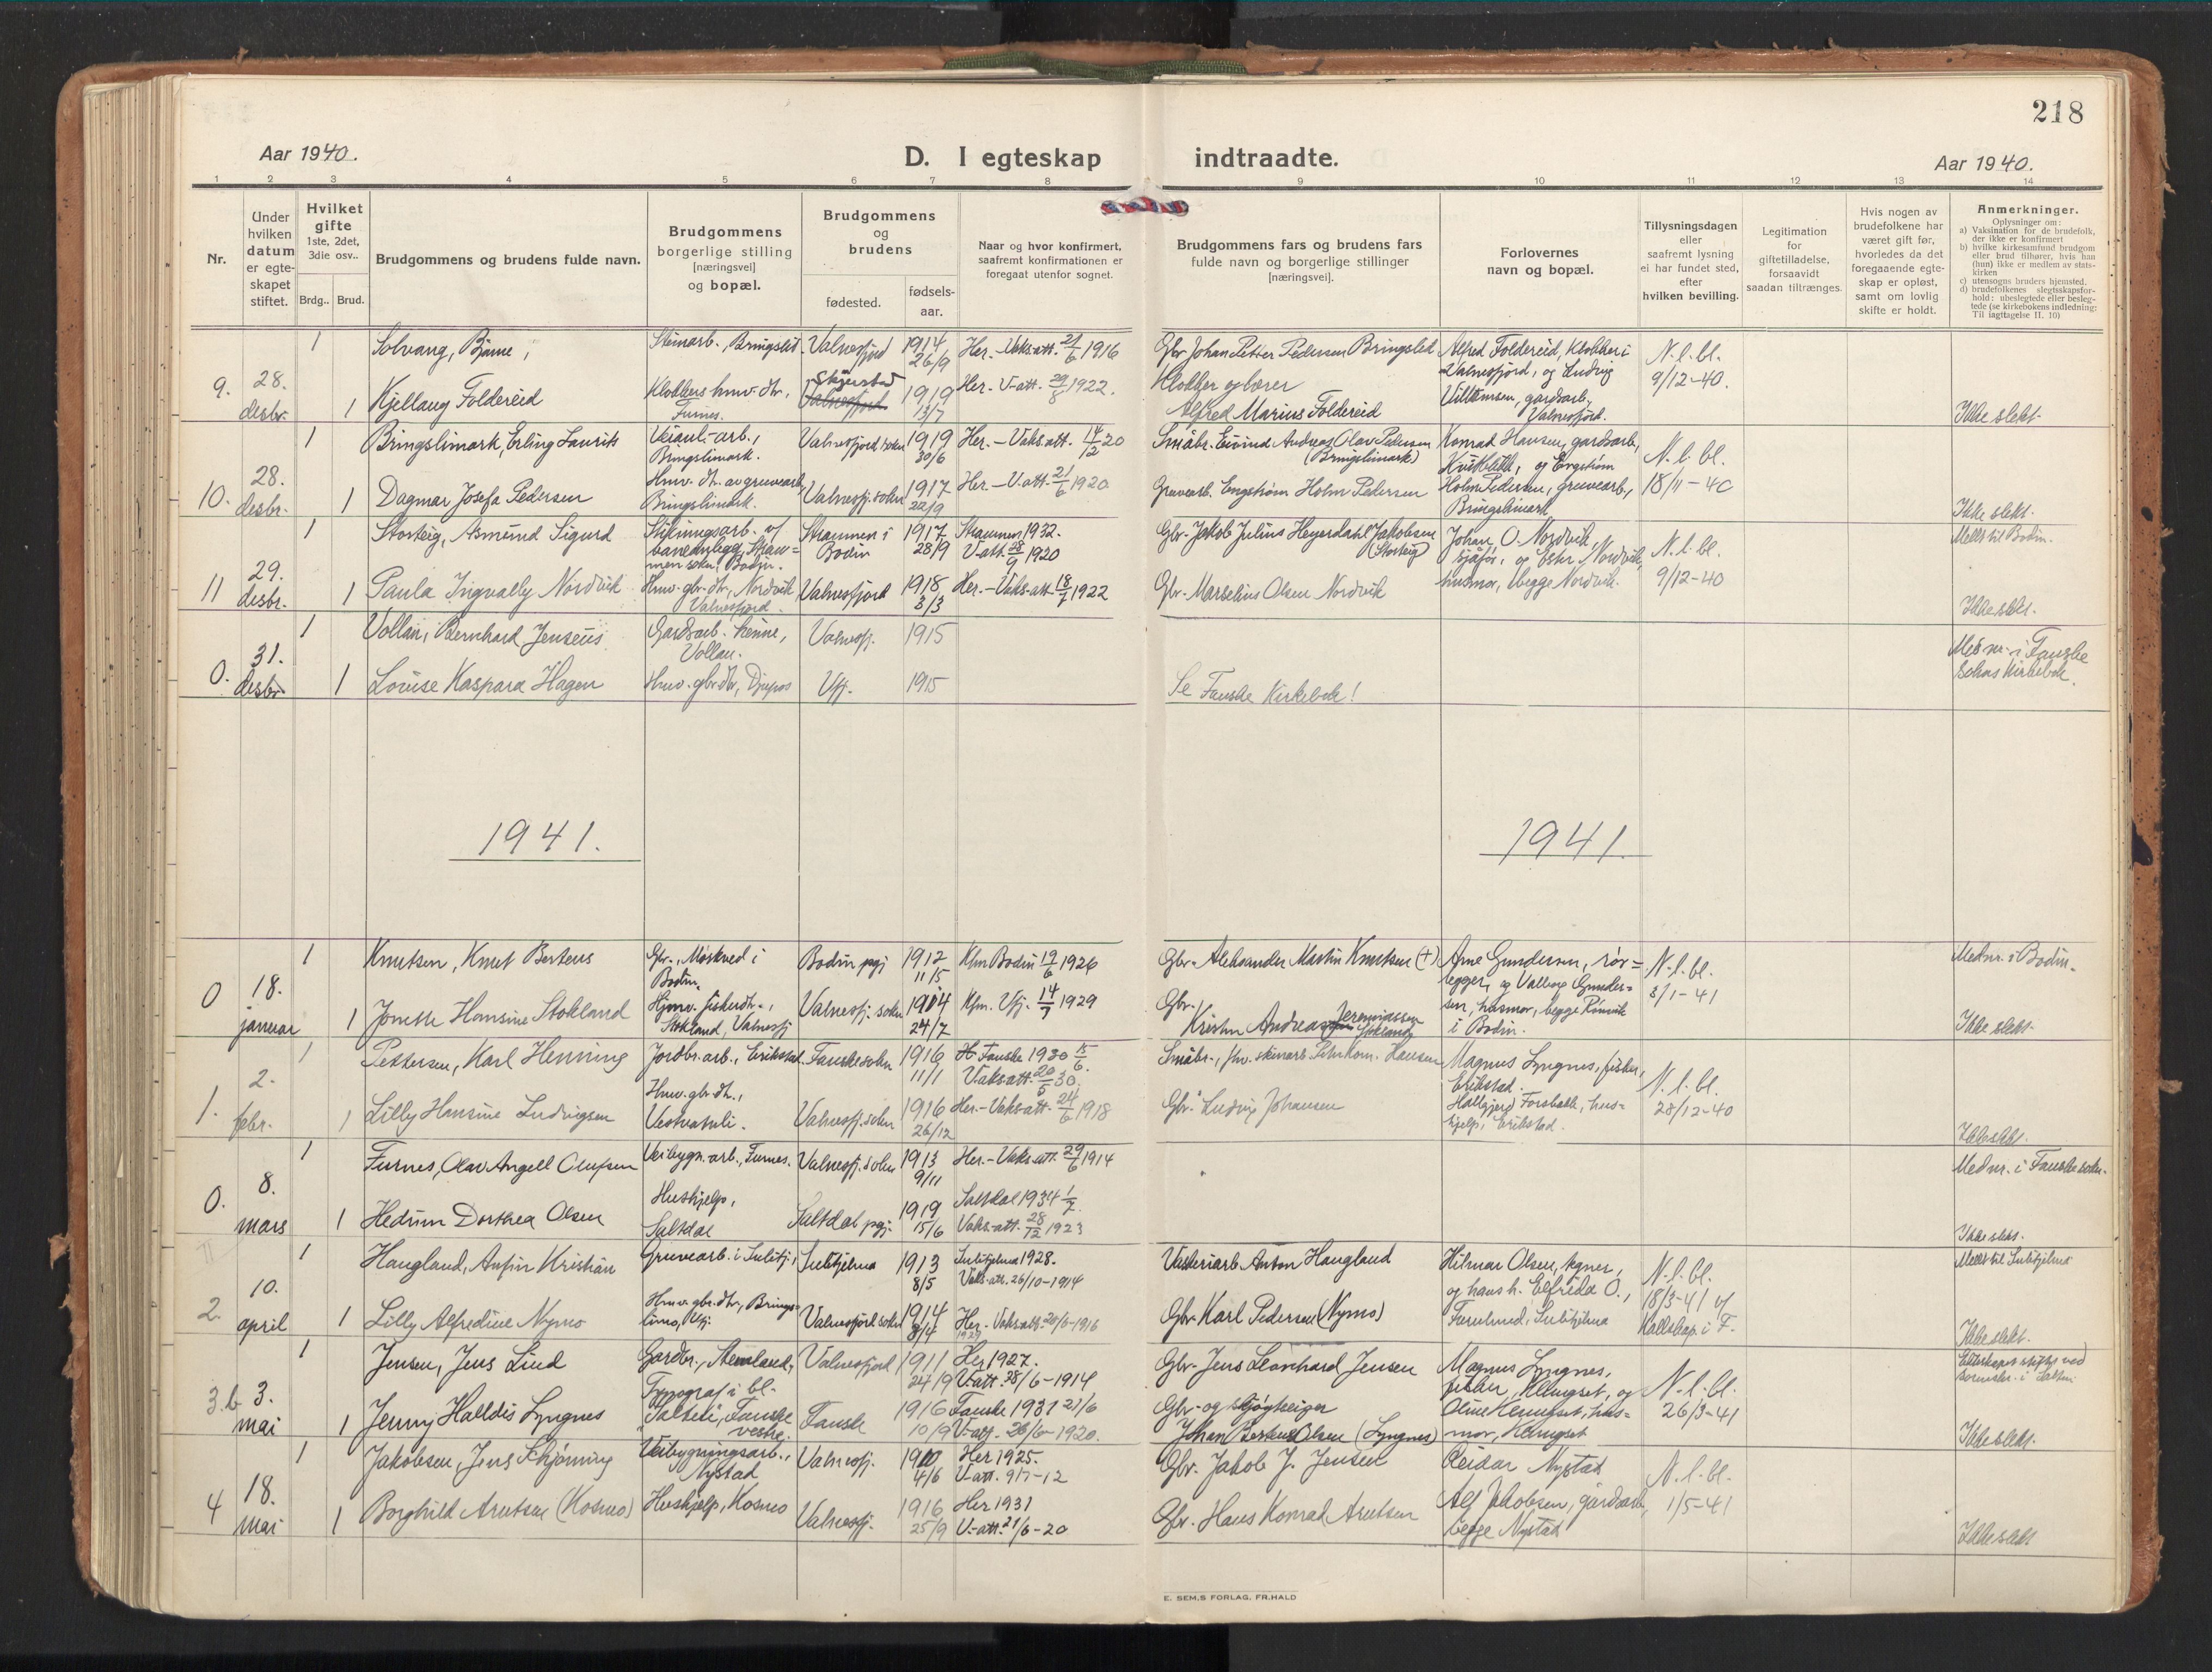 218
Aar 1940.
D. I egteskap indtraadte.
Aar 1940.
1 2 3 4 5 6 7 8 9 10 11 12 13 14
Nr.
Under hvilken datum er egteskapet stiftet.
Hvilket gifte 1ste, 2det, 3die osv..
Brdg.. Brud.
Brudgommens og brudens fulde navn.
Brudgommens borgerlige stilling [næringsvei] og bopæl.
Brudgommens og brudens
fødested.
fødselsaar.
Naar og hvor konfirmert, saafremt konfirmationen er foregaat utenfor sognet.
Brudgommens fars og brudens fars fulde navn og borgerlige stillinger [næringsvei].
Forlovernes navn og bopæl.
Tillysningsdagen eller saafremt lysning ei har fundet sted, efter hvilken bevilling.
Legitimation for giftetilladelse, forsaavidt saadan tiltrænges.
Hvis nogen av brudefolkene har været gift før, hvorledes da det foregaaende egteskap er opløst, samt om lovlig skifte er holdt.
Anmerkninger.
Oplysninger om:
a) Vaksination for de brudefolk, der ikke er konfirmert
b) hvilke kirkesamfund brudgom eller brud tilhører, hvis han (hun) ikke er medlem av statskirken
c) utensogns bruders hjemsted.
d) brudefolkenes slegtsskapsforhold: ubeslegtede eller beslegtede (se kirkebokens indledning: Til iagttagelse II. 10)
9. 28. desbr.
1 Solvang, Bjarne, Steinarb., Bringsli Valnesfjord 1914 26/9 Her.-Vaks.att. 21/6 1916
Gbr Johan Petter Pedersen Bringsli
Alfred Foldereid, Klokker i Valnesfjord, og Ludvig Villumsen, gardsarb., Valnesfjord.
N.l.bl. 9/12-40.
1 Kjellaug Foldereid Klokkers hmv. dtr., Furnes. Skjerstad Valnesfjord 1919 13/7 Her.-V-att. 29/8 1922.
Klokker og lærer Alfred Marius Foldereid
Ikke slekt.
10. 28. desbr.
1 Bringslimark, Erling Laurits Veianl.-arb., Bringslimark. Valnesfjord sokn 1919 30/6 Her.-Vaks.att. 14/2 20
Småbr. Eivind Andreas Olav Pedersen (Bringslimark)
Konrad Hansen, gardsarb., og Engstrøm Holm Pedersen, gruvearb., Bringslimark
N.l.bl. 18/11-40
1 Dagmar Josefa Pedersen Hmv. dtr. av gruvearb, Bringslimark. Valnesfj. sokn 1917 22/9 Her-V.att. 21/6 1920
Gruvearb. Engstrøm Holm Pedersen
Ikke slekt.
11 29. desbr.
1 Storteig, Asmund Sigurd Stikningsarb. v/ baneanlegg, Straumen sokn, Bodin. Straumen i Bodin 1917 28/9 Straumen 1932. V-att. 28/9 1920
Gbr. Jakob Julius Heyerdahl Jakobsen (Storteig)
Johan O. Nordvik, sjåfør, og Ester Nordvik, husmor, begge Nordvik.
N.l.bl. 9/12-40
Meldt til Bodin.
1 Paula Ingvally Nordvik Hmv. gbr. dtr., Nordvik, Valnesfjord. Valnesfjord 1918 3/3 Her.-Vaks-att. 18/7 1922
Gbr. Marselius Olsen Nordvik
Ikke slekt.
0. 31. desbr
1 Vollan, Bernhard Jensenius Gardsarb. Vollan. Valnesfj. 1915
1 Lovise Kaspara Hagen Hmv. gbr. dtr, Djupos Vfj. 1915
Se Fauske Kirkebok!
Med nr. i Fauske sokns Kirkebok.
1941.
1941.
0 18. januar
1 Knutsen, Knut Berteus Gbr., Mørkved i Bodin. Bodin pgj 1912 11/5 Kfm Bodin 19/6 1926
Gbr. Aleksander Martin Knutsen (+)
Arne Gundersen, rørlegger, og Valborg Gundersen, husmor, begge Rønvik i Bodin.
N.l.bl. 3/1-41
Med nr. i Bodin.
1 Jonette Hansine Stokland Hjmv. fiskerdtr., Stokland, Valnesfj. Valnesfj. sokn 1914 24/7 Kfm. Vfj. 14/7 1929
Gbr. Kristen Andreas Jeremiassen Stokland
Ikke slekt.
1. 2. febr.
1 Pettersen, Karl Henning Jordbr.arb., Erikstad Fauske sokn 1916 11/1 H Fauske 1930 15/6. Vaks.att. 20/5 30.
Magnus Lyngnes, fisker, Erikstad. Hallgjerd Forsbakk, hushjelp, Erikstad.
N.l.bl. 28/12-40
1 Lilly Hansine Ludvigsen Hmv. gbr. dtr., Valnesfj. sokn 1916 26/12 Her.-Vaks-att. 24/6 1918
Gbr. Ludvig Johansen
Ikke slekt.
0. 8. mars
1 Furnes, Olav Angell Olufsen Veibygn. arb., Furnes. Valnesfj. sokn 1913 9/11 Her.-Vaks.att. 29/6 1914
Med nr. i Fauske sokn.
1 Hedrun Dorthea Olsen Hushjelp, Saltdal Saltdal pgj. 1919 15/6 Saltdal 1934 1/7. Vaks-att. 28/12 1923
Ikke slekt.
2. 10. april
1 Haugland, Anfin Kristian Gruvearb. i Sulitj., Sulitjelma 1913 8/5 Sulitjelma 1928. Vaks-att. 26/10-1914
Vaskeriarb. Anton Haugland
Hilmar Olsen, og hans h. Elfrida O., Furulund, Sulitjelma
N.l.bl. 18/3-41 v/ Kallskap. i F.
Meldt til Sulitjelma
1 Lilly Alfredine Nymo Hmv. gbr. dtr., Bringslimo, Vfj. Valnesfjord sokn 1914 8/4 Her.-Vaksatt. 20/6-1916
Gbr. Karl Pedersen (Nymo)
Ikke slekt.
3.b 3. mai
1 Jensen, Jens Lind Gardbr., Stemland, Valnesfjord 1911 24/9 Her 1927. V-att. 28/6-1914
Gbr. Jens Leonhard Jensen
Magnus Lyngnes, fisker, Klungset, og Oline Klungset, husmor, Klungset
N.l.bl. 26/3-41
Ekteskapet stiftet ved sorenskr. i Salten
1 Jenny Halldis Lyngnes Typograf i bl. "Salten", Fauske vestre. Fauske 1916 10/9 Fauske 1931 21/6 V-att. 26/6-1920.
Gbr. og skjøytreiger Johan Berteus Olsen (Lyngnes)
Ikke slekt.
4 18. mai
1 Jakobsen, Jens Schjønning Veibygningsarb., Nystad Valnesfj. 1910 4/6 Her 1925. V-att. 9/7-12
Gbr. Jakob J. Jensen
Reidar Nystad Alf Jakobsen, gårdsarb, begge Nystad
N.l.bl. 1/5-41
1 Borghild Arntsen (Kosmo) Hushjelp, Kosmo Valnesfj. 1916 25/9 Her 1931 V.-att. 21/6-20
Gbr. Hans Konrad Arntsen
Ikke slekt
E. SEM,S FORLAG. FR.HALD